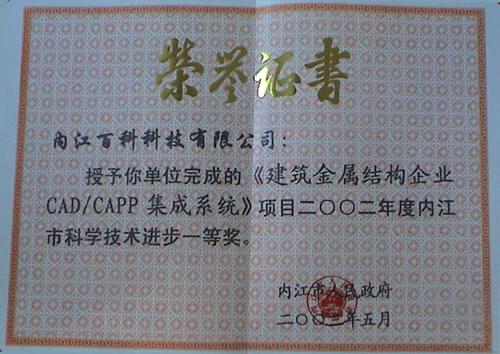 荣誉证书
内江百科科技有限公司：
授予你单位完成的《建筑金属结构企业
CAD/CAPP 集成系统》项目二〇〇二年度内江
市科学技术进步一等奖。
内江市人民政府
二〇〇三年五月